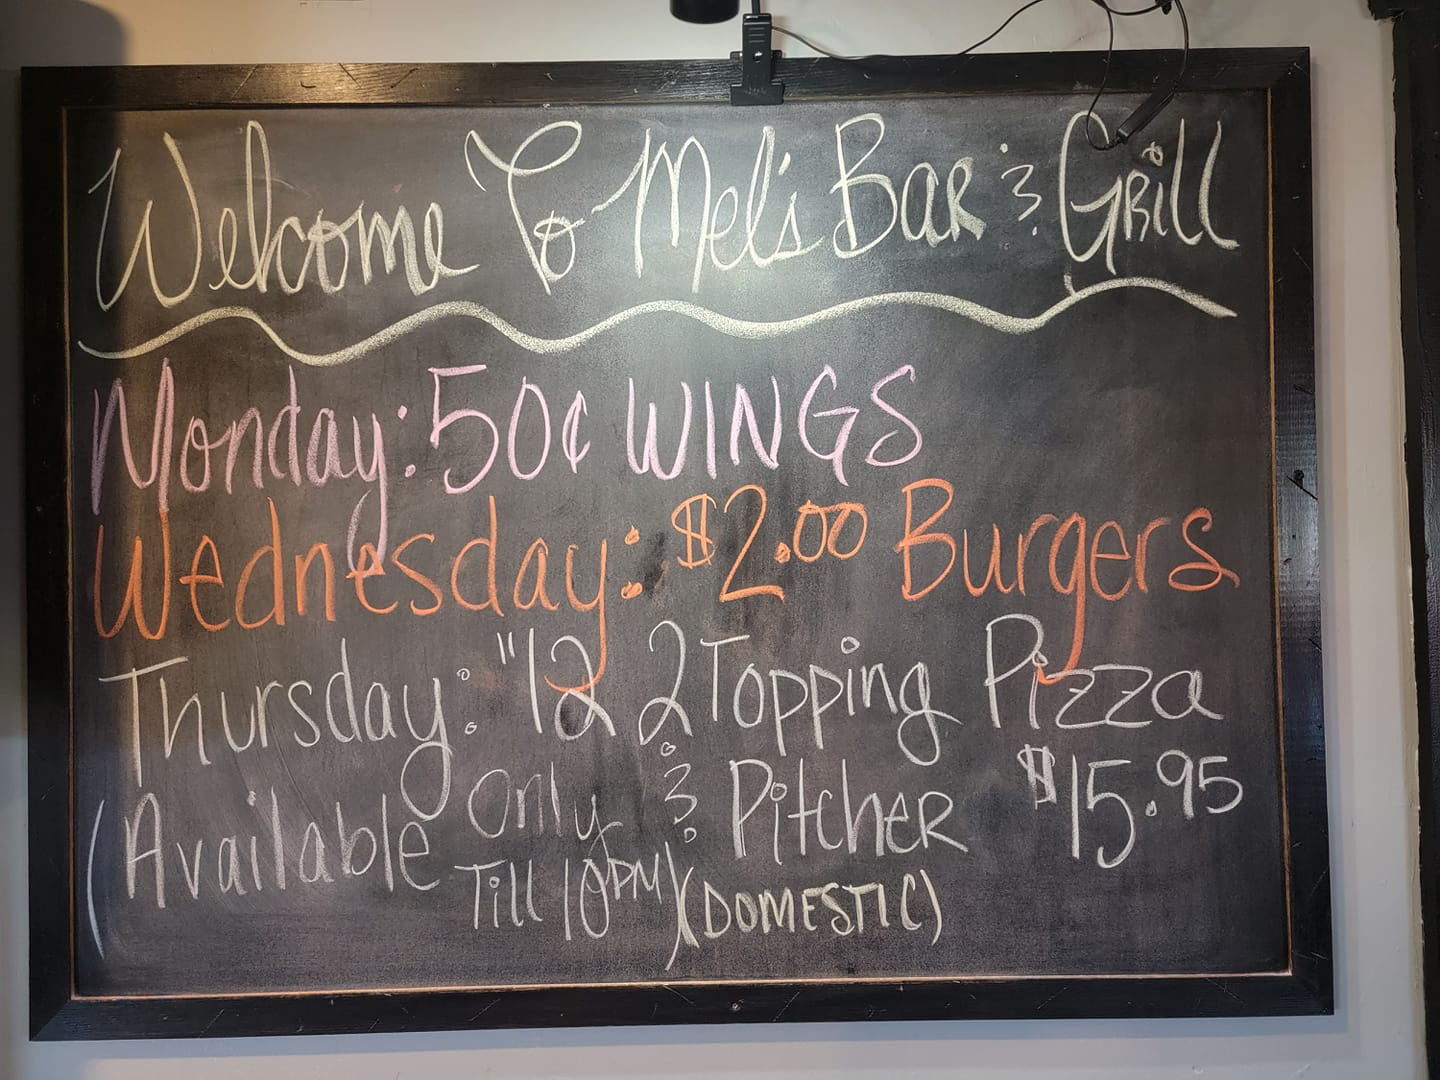 Welcome To Mel's Bar & Grill
Monday: 50¢ WINGS
Wednesday: $2.00 Burgers
Thursday: "12 2 Topping Pizza
(Available Only & Pitcher $15.95
Till 10PM) (DOMESTIC)